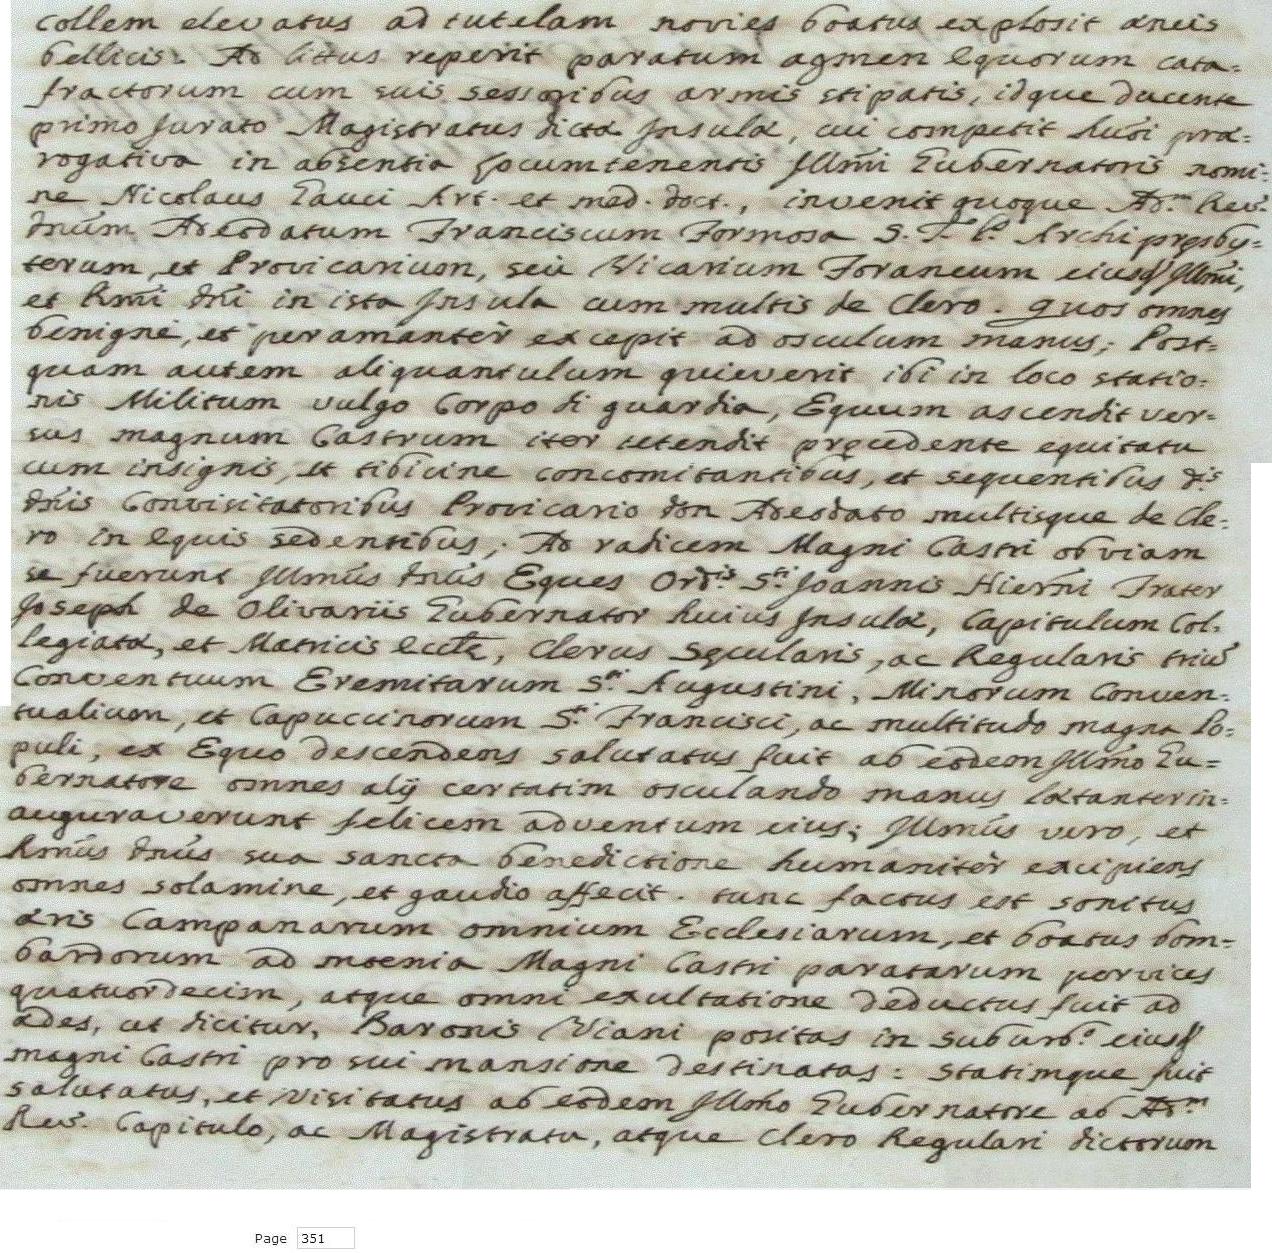 collem elevatus ad tutelam novies boatus explosit æneis
bellicis. Ad littus reperit paratum agmen Equorum cata-
fractorum cum suis sessoribus armis stipatis, idque ducente
primo Jurato Magistratus dictæ Insulæ, cui competit huiusmodi præ-
rogativa in absentia locumtenentis Illmi Gubernatoris nomi-
ne Nicolaus Gauci Art. et med. doct., invenit quoque Adm Rev.
dnum Adeodatum Franciscum Formosa S. T. P. Archipresby-
terum, et Provicarium, seu Vicarium Foraneum eiusd Illmi,
et Rmi dni in ista Insula cum multis de Clero. Quos omnes
benignè, et peramantèr excepit ad osculum manus; Post-
quam autem aliquantulum quieverit ibi in loco statio-
nis Militum vulgo Corpo di guardia, Equum ascendit ver-
sus magnum Castrum iter tetendit precedente equitatu
cum insignis, et tibicine concomitantibus, et sequentibus ds
dnis Convisitatoribus Provicario don Adeodato multisque de Cle-
ro in Equis sedentibus; Ad radicem Magni Castri obviam
se fuerunt Illmus dnus Eques Ordis Sti Joannis Hierni Frater
Joseph de Olivariis Gubernator huius Insulæ, Capitulum Col-
legiatæ, et Matricis Eccle, Clerus Secularis, ac Regularis triu
Conventuum Eremitarum Sti Augustini, Minorum Conven-
tualium, et Capuccinorum Sti Francisci, ac multitudo magna Po-
puli, ex Equo descendens salutatus fuit ab eodem Illmo Gu-
bernatore omnes alij certatim osculando manus lætanter in-
auguraverunt felicem adventum eius; Illmus vero, et
Rmus dnus sua sancta benedictione humanitèr excipiens
omnes solamine, et gaudio affecit. tunc factus est sonitus
æris Campanarum omnium Ecclesiarum, et boatus bom-
bardorum ad moenia Magni Castri paratarum per vices
quatuordecim, atque omni exultatione deductus fuit ad
ædes, ut dicitur, Baronis Viani positas in suburbo eiusd
magni Castri pro sui mansione destinatas: statimque fuit
salutatus, et visitatus ab eodem Illmo Gubernatore ab Adm
Rev. Capitulo, ac Magistratu, atque Clero Regulari dictorum
Page 351